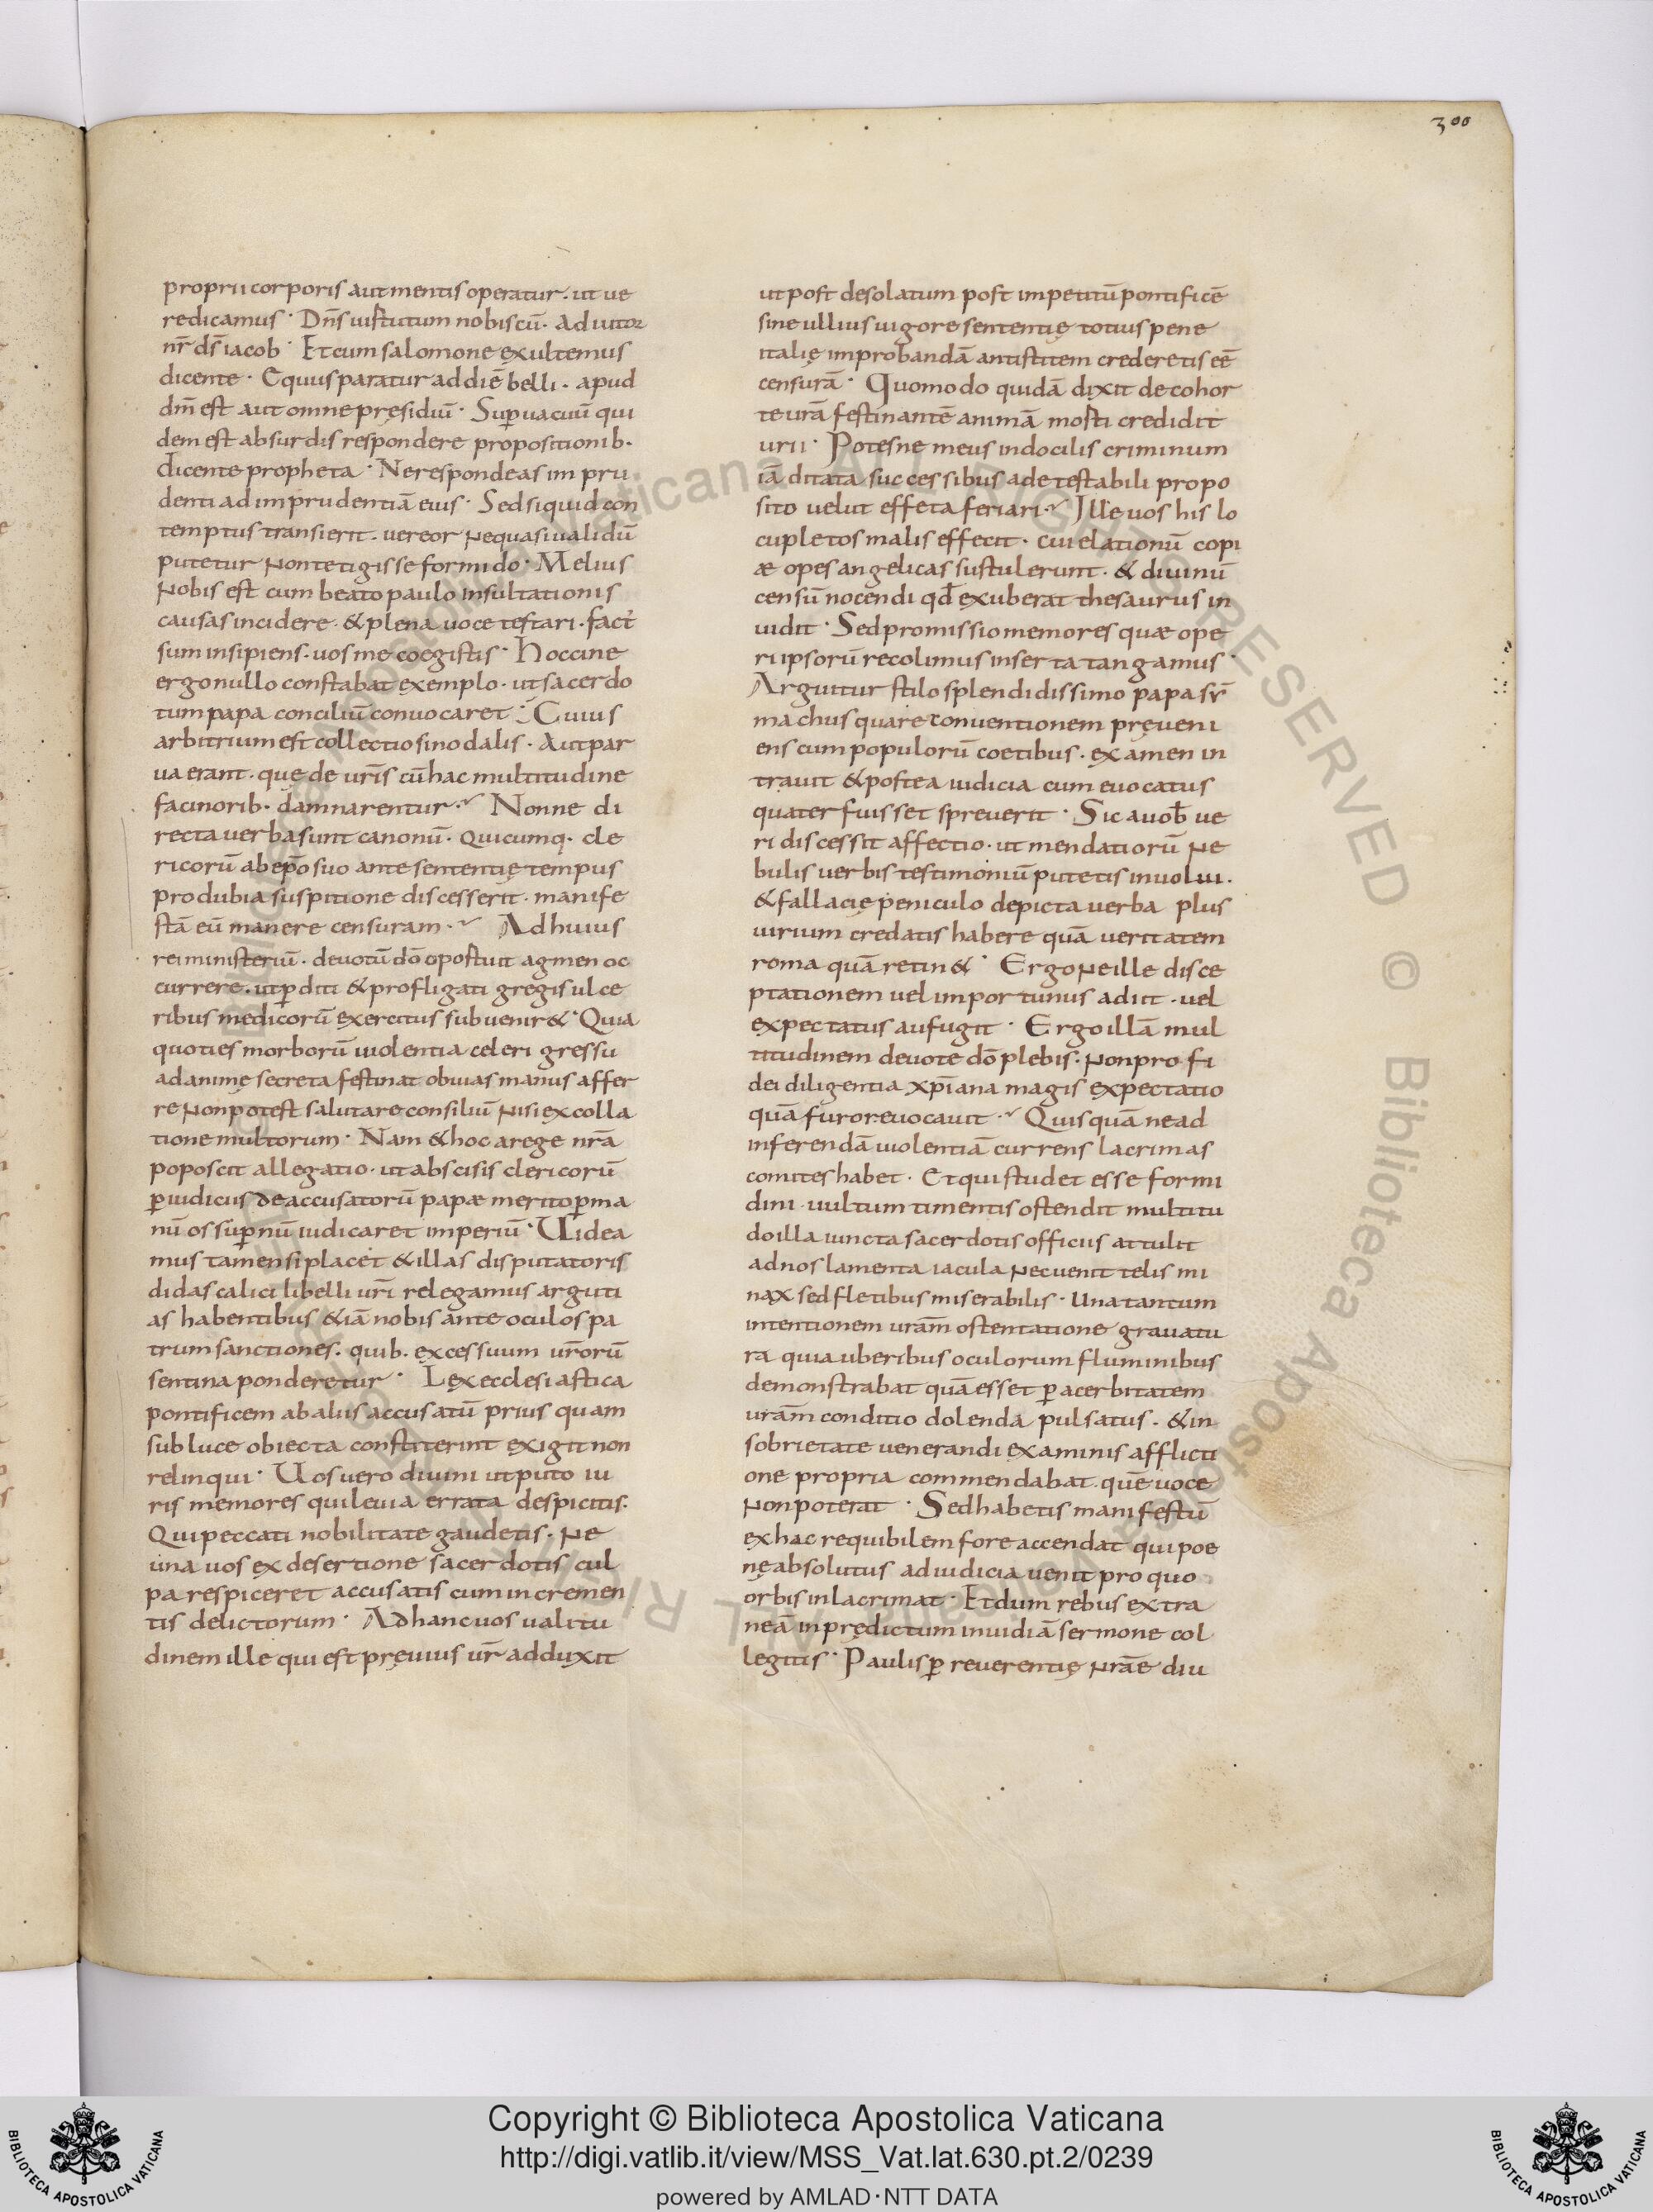 300
proprii corporis aut mentis operatur. ut ue
redicamus · Dn̄s uiſtutum nobiscū. adiutor
nr̄ ds̄ iacob · Et cum salomone exultemus
dicente · Equus paratur ad diē belli. apud
dm̄ est aut omne pręsidiū · Suꝑuacuū qui
dem est absurdis respondere propositionib·
dicente propheta · Ne respondeas impru
denti ad imprudentiā eius · Sed si quid con
temptus transierit. uereor ne quasi ualidū
putetur non tetigisse formido · Melius
nobis est cum beato paulo insultationis
causas incidere. & plena uoce testari. fact'
sum insipiens. uos me coegistis · Hoccine
ergo nullo constabat exemplo. ut sacerdo
tum papa conciliū conuocaret · Cuius
arbitrium est collectio sinodalis. Aut par
ua erant. quę de ur̄is cū hac multitudine
facinorib. damnarentur. Nonne di
recta uerba sunt canonū. quicumq. cle
ricorū ab ep̄o suo ante sententię tempus
pro dubia suspitione discesserit. manife
stā eū manere censuram. Ad huius
rei ministeriū. deuotū dō opoſtuit agmen oc
currere. ut ꝑditi & profligati gregis ulce
ribus medicorū exercitus subuenir& · Quia
quoties morborū uiolentia celeri gressu
ad animę secreta festinat obuias manus affer
re non potest salutare consiliū nisi ex colla
tione multorum · Nam & hoc a rege nr̄a
poposcit allegatio. ut abscisis clericorū
ꝑ iudicius de accusatorū papae merito ꝑ ma
nū os suꝑnū iudicaret imperiū · Uidea
mus tamen si placet & illas disputatoris
didascalici libelli ur̄i relegamus arguti
as habentibus & iā nobis ante oculos pa
trum sanctiones. quib. excessuum ur̄orū
sentina ponderetur · Lex ecclesiastica
pontificem ab aliis accusatū prius quam
sub luce obiecta constiterint exigit non
relinqui · Uos uero diuini ut puto iu
ris memores qui leuia errata despicitis.
Qui peccati nobilitate gaudetis. ne
una uos ex desertione sacerdotis cul
pa respiceret accusatis cum incremen
tis delictorum · Ad hanc uos ualitu
dinem ille qui est pręuius ur̄ adduxit
ut post desolatum post impetitū pontificē
sine ullius uigore sententię totius pene
italię improbandā antistitem crederetis eē
censurā · Quomodo quidā dixit de cohor
te ur̄ā festinantē animā mosti credidit
urii · Potesne meus indocilis criminum
iā ditata successibus a detestabili propo
sito uelut effeta feriari. Ille uos his lo
cupletos malis effecit. cui elationū copi
ae opes angelicas sustulerunt. & diuinū
censū nocendi qđ exuberat thesaurus in
uidit · Sed promissio memores quae ope
ri ipsorū recolimus inserta tangamus ·
Arguitur stilo splendidissimo papa sȳ
machus quare conuentionem pręueni
ens cum populorū coetibus. examen in
trauit & postea iudicia cum euocatus
quater fuisset spreuerit · Sic a uob̄ ue
ri discessit affectio. ut mendatiorū ne
bulis uerbis testimoniū putetis inuolui.
& fallacię peniculo depicta uerba plus
uirium credatis habere quā ueritatem
roma quā retin& · Ergo ne ille disce
ptationem uel importunus adiit. uel
expectatus aufugit · Ergo illā mul
titudinem deuote dō plebis. non pro fi
dei diligentia xp̄iana magis expectatio
quā furor euocauit. Quisquā ne ad
inferendā uiolentiā currens lacrimas
comites habet. Et qui studet esse formi
dini uultum timentis ostendit multitu
do illa iuncta sacerdotis officiis attulit
ad nos lamenta iacula nec uenit telis mi
nax sed fletibus miserabilis · Una tantum
intentionem ur̄am ostentatione grauatu
ra quia uberibus oculorum fluminibus
demonstrabat quā esset ꝑ acerbitatem
ur̄am conditio dolenda pulsatus. & in
sobrietate uenerandi examinis afflicti
one propria commendabat. quē uoce
non poterat · Sed habetis manifestū
ex hac re quibilem fore accendat qui poe
nę absolutus ad iudicia uenit pro quo
orbis inlacrimat · Et dum rebus extra
neā in prędictum inuidiā sermone col
legitis · Paulisꝑ reuerentię nr̄ae diu
Copyright © Biblioteca Apostolica Vaticana
http://digi.vatlib.it/view/MSS_Vat.lat.630.pt.2/0239
powered by AMLAD·NTT DATA
BIBLIOTECA APOSTOLICA VATICANA
BIBLIOTECA APOSTOLICA VATICANA